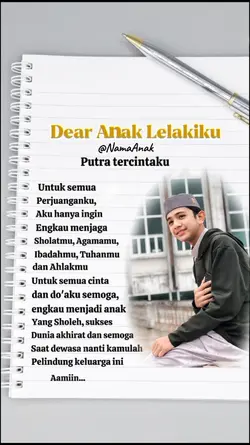 Dear Anak Lelakiku
@NamaAnak
Putra tercintaku
Untuk semua
Perjuanganku,
Aku hanya ingin
Engkau menjaga
Sholatmu, Agamamu,
Ibadahmu, Tuhanmu
dan Ahlakmu
Untuk semua cinta
dan do'aku semoga,
engkau menjadi anak
Yang Sholeh, sukses
Dunia akhirat dan semoga
Saat dewasa nanti kamulah
Pelindung keluarga ini
Aamiin...